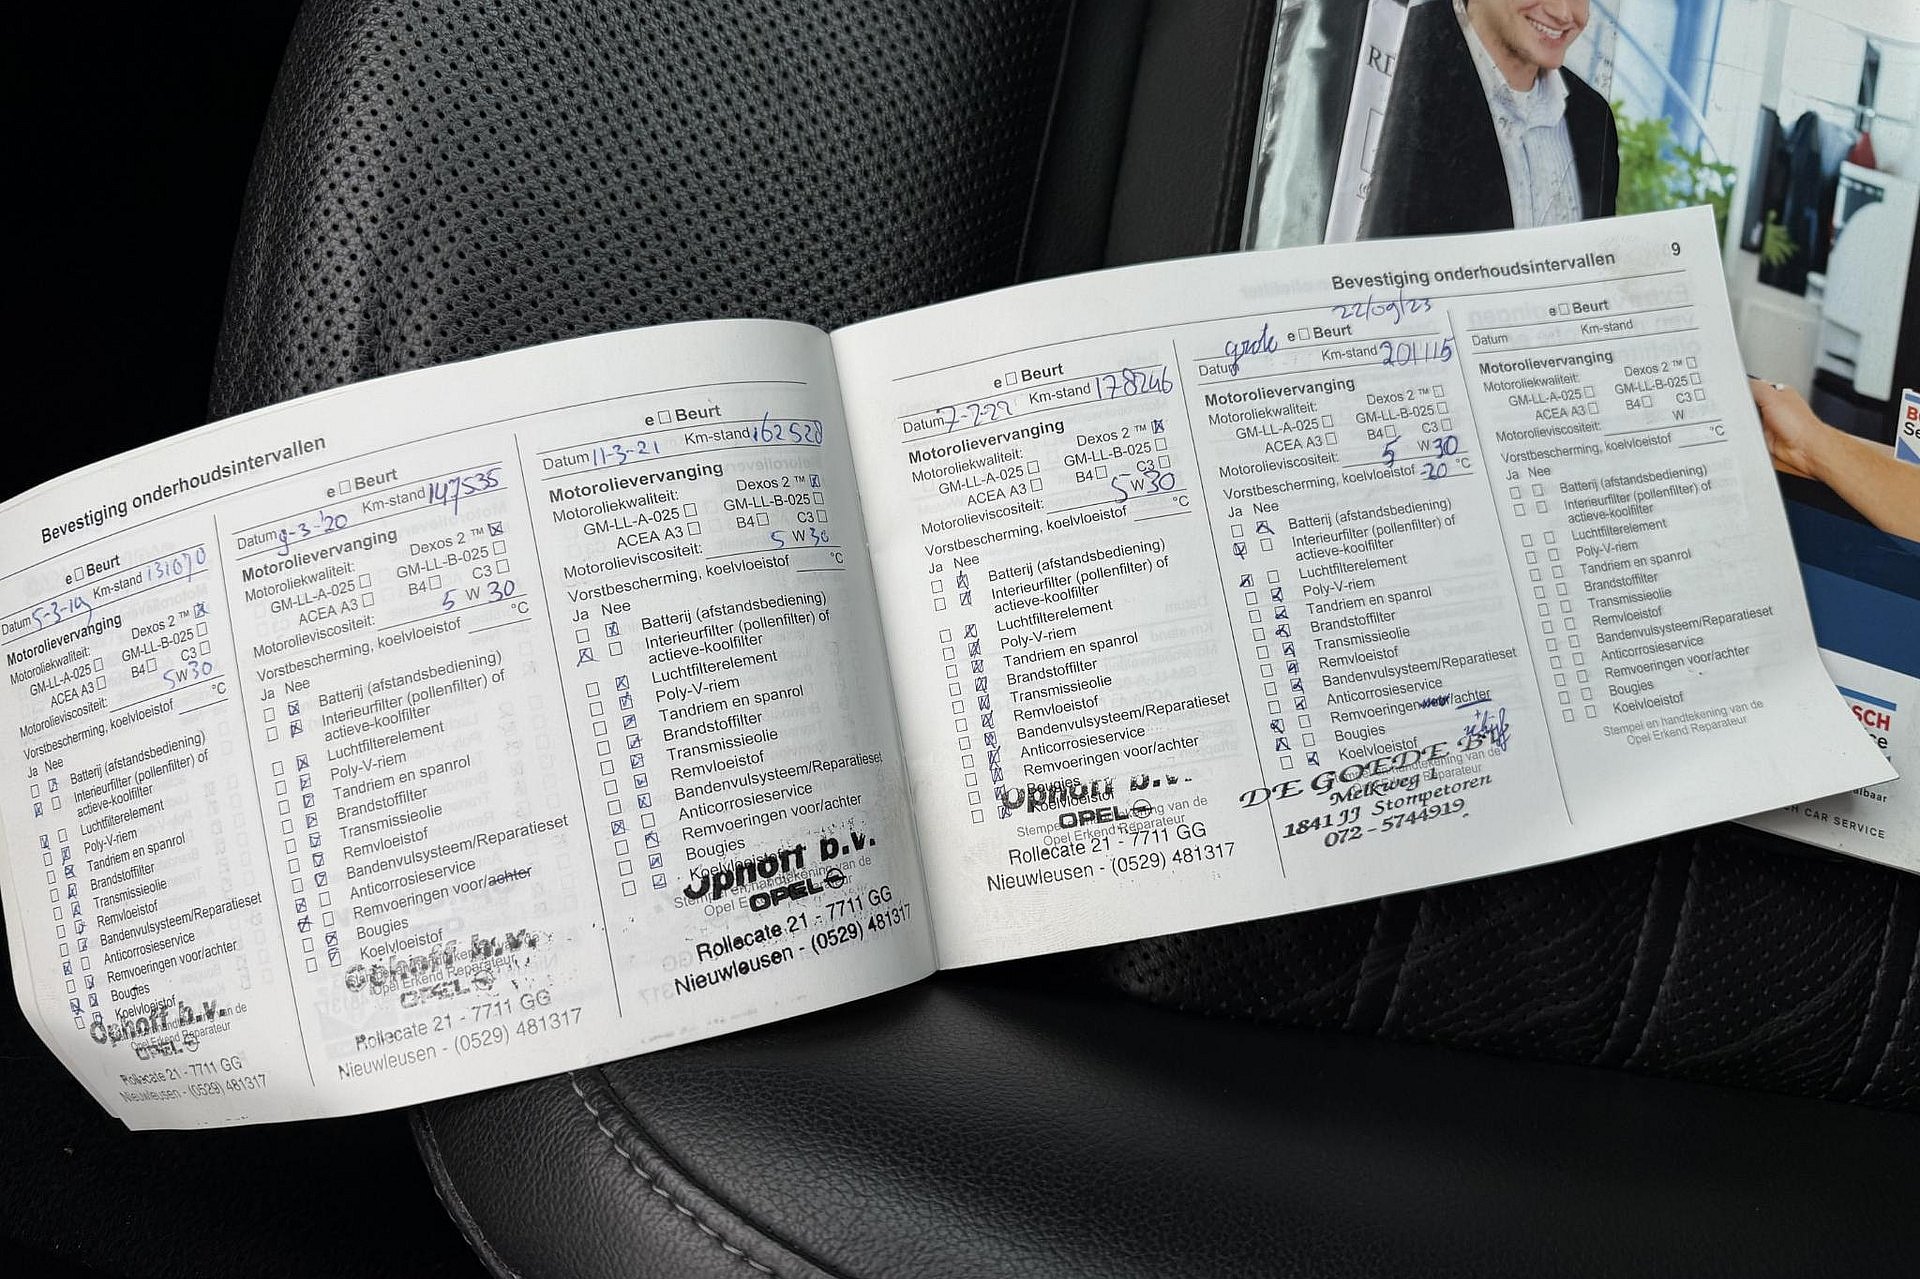 Bevestiging onderhoudsintervallen
e □ Beurt
Datum 5-3-19 Km-stand 131070
Motorolievervanging
Motoroliekwaliteit: Dexos 2 ™ ☒
GM-LL-A-025 □ GM-LL-B-025 □
ACEA A3 □ B4 □ C3 □
Motorolieviscositeit: 5 W 30
Vorstbescherming, koelvloeistof °C
Ja Nee
Batterij (afstandsbediening)
Interieurfilter (pollenfilter) of
actieve-koolfilter
Luchtfilterelement
Poly-V-riem
Tandriem en spanrol
Brandstoffilter
Transmissieolie
Remvloeistof
Bandenvulsysteem/Reparatieset
Anticorrosieservice
Remvoeringen voor/achter
Bougies
Koelvloeistof
Ophoff b.v.
Opel Erkend Reparateur
OPEL
Rollecate 21 - 7711 GG
Nieuwleusen - (0529) 481317
e □ Beurt
Datum 9-3-'20 Km-stand 147535
Motorolievervanging
Motoroliekwaliteit: Dexos 2 ™ ☒
GM-LL-A-025 □ GM-LL-B-025 □
ACEA A3 □ B4 □ C3 □
Motorolieviscositeit: 5 W 30
Vorstbescherming, koelvloeistof °C
Ja Nee
Batterij (afstandsbediening)
Interieurfilter (pollenfilter) of
actieve-koolfilter
Luchtfilterelement
Poly-V-riem
Tandriem en spanrol
Brandstoffilter
Transmissieolie
Remvloeistof
Bandenvulsysteem/Reparatieset
Anticorrosieservice
Remvoeringen voor/achter
Bougies
Koelvloeistof
Ophoff b.v.
Opel Erkend Reparateur
OPEL
Rollecate 21 - 7711 GG
Nieuwleusen - (0529) 481317
e □ Beurt
Datum 11-3-21 Km-stand 162528
Motorolievervanging
Motoroliekwaliteit: Dexos 2 ™ ☒
GM-LL-A-025 □ GM-LL-B-025 □
ACEA A3 □ B4 □ C3 □
Motorolieviscositeit: 5 W 30
Vorstbescherming, koelvloeistof °C
Ja Nee
Batterij (afstandsbediening)
Interieurfilter (pollenfilter) of
actieve-koolfilter
Luchtfilterelement
Poly-V-riem
Tandriem en spanrol
Brandstoffilter
Transmissieolie
Remvloeistof
Bandenvulsysteem/Reparatieset
Anticorrosieservice
Remvoeringen voor/achter
Bougies
Koelvloeistof
Ophoff b.v.
OPEL
Rollecate 21 - 7711 GG
Nieuwleusen - (0529) 481317
Bevestiging onderhoudsintervallen 9
e □ Beurt
Datum 7-7-22 Km-stand 178246
Motorolievervanging
Motoroliekwaliteit: Dexos 2 ™ ☒
GM-LL-A-025 □ GM-LL-B-025 □
ACEA A3 □ B4 □ C3 □
Motorolieviscositeit: 5 W 30
Vorstbescherming, koelvloeistof °C
Ja Nee
Batterij (afstandsbediening)
Interieurfilter (pollenfilter) of
actieve-koolfilter
Luchtfilterelement
Poly-V-riem
Tandriem en spanrol
Brandstoffilter
Transmissieolie
Remvloeistof
Bandenvulsysteem/Reparatieset
Anticorrosieservice
Remvoeringen voor/achter
Bougies
Koelvloeistof
Ophoff b.v.
OPEL
Opel Erkend Reparateur
Rollecate 21 - 7711 GG
Nieuwleusen - (0529) 481317
22/09/23
grote e □ Beurt
Datum Km-stand 201115
Motorolievervanging
Motoroliekwaliteit: Dexos 2 ™ □
GM-LL-A-025 □ GM-LL-B-025 □
ACEA A3 □ B4 □ C3 □
Motorolieviscositeit: 5 W 30
Vorstbescherming, koelvloeistof -20 °C
Ja Nee
Batterij (afstandsbediening)
Interieurfilter (pollenfilter) of
actieve-koolfilter
Luchtfilterelement
Poly-V-riem
Tandriem en spanrol
Brandstoffilter
Transmissieolie
Remvloeistof
Bandenvulsysteem/Reparatieset
Anticorrosieservice
Remvoeringen voor/achter
Bougies
Koelvloeistof
DE GOEDE
Melkweg 1
1841 JJ Stompetoren
072 - 5744919
e □ Beurt
Datum Km-stand
Motorolievervanging
Motoroliekwaliteit: Dexos 2 ™ □
GM-LL-A-025 □ GM-LL-B-025 □
ACEA A3 □ B4 □ C3 □
Motorolieviscositeit: W
Vorstbescherming, koelvloeistof °C
Ja Nee
Batterij (afstandsbediening)
Interieurfilter (pollenfilter) of
actieve-koolfilter
Luchtfilterelement
Poly-V-riem
Tandriem en spanrol
Brandstoffilter
Transmissieolie
Remvloeistof
Bandenvulsysteem/Reparatieset
Anticorrosieservice
Remvoeringen voor/achter
Bougies
Koelvloeistof
Stempel en handtekening van de
Opel Erkend Reparateur
CAR SERVICE